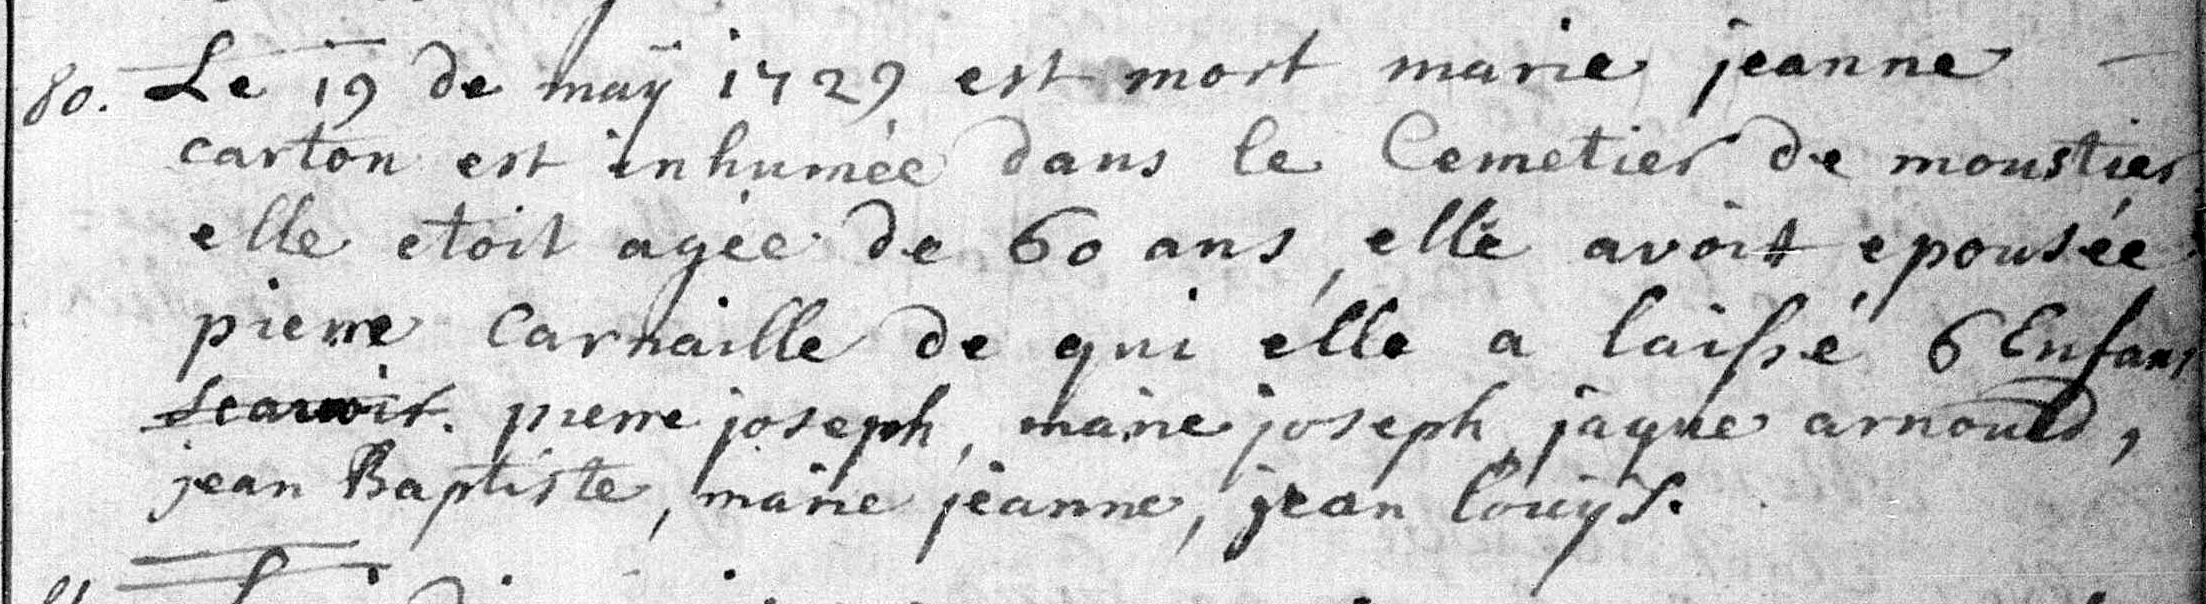 80. Le 19 de maÿ 1729 est mort marie jeanne
carton est inhumée dans le Cemetier de moustier
elle etoit agée de 60 ans, elle avoit epousée
pierre Carnaille de qui élle a laissé 6 Enfans
scavoir. pierre joseph, marie joseph, jaque arnould,
jean Baptiste, marie jeanne, jean louÿs.